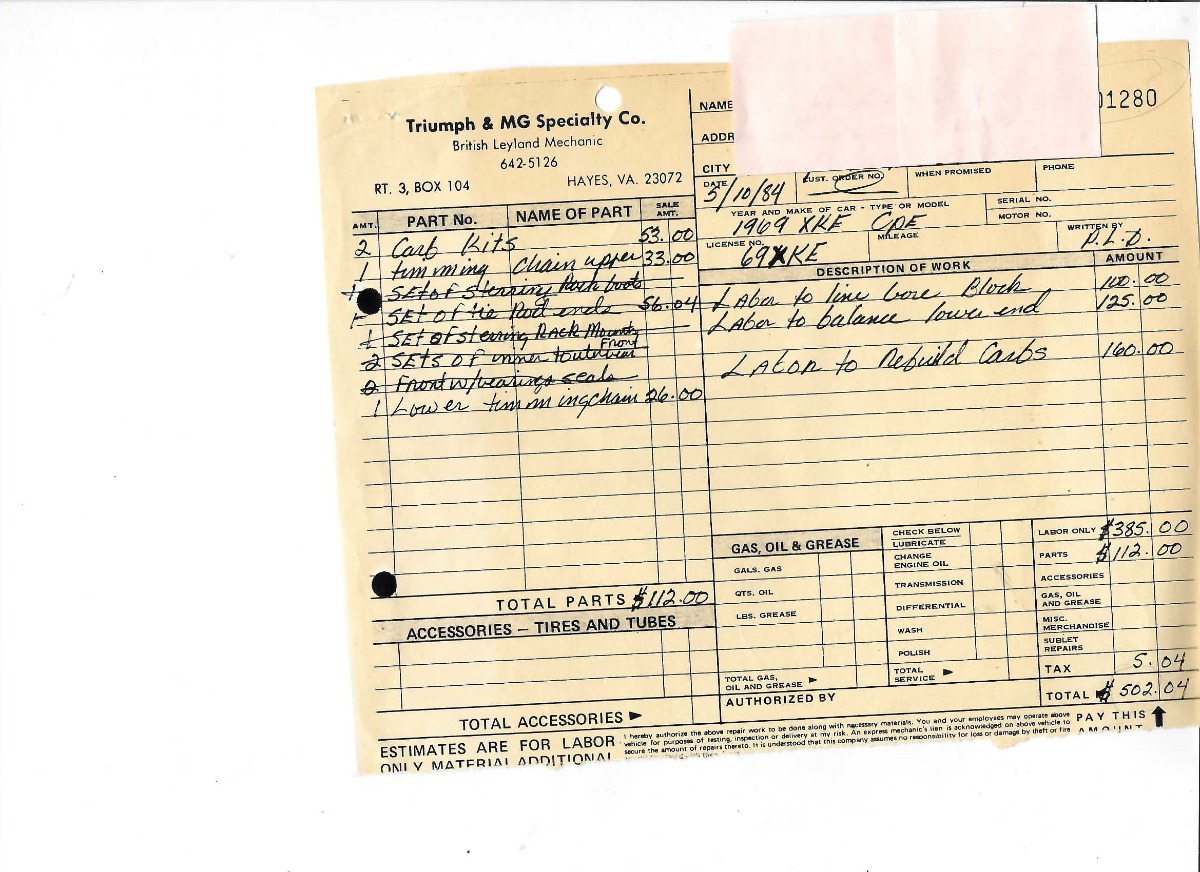 Triumph & MG Specialty Co.
British Leyland Mechanic
642-5126
RT. 3, BOX 104 HAYES, VA. 23072
AMT. PART No. NAME OF PART SALE AMT.
2 Carb Kits 53.00
1 timming Chain upper 33.00
1 SET of steering Rack boots
1 SET of tie Rod ends 56.04
1 SET of steering RACK Mounts
2 SETS of inner to outer Front
2 Front w/bearings seals
1 Lower timmingchain 26.00
TOTAL PARTS $112.00
ACCESSORIES – TIRES AND TUBES
TOTAL ACCESSORIES
ESTIMATES ARE FOR LABOR
ONLY MATERIAL ADDITIONAL
NAME
01280
ADDR
CITY
DATE 5/10/84 CUST. ORDER NO. WHEN PROMISED PHONE
YEAR AND MAKE OF CAR - TYPE OR MODEL 1969 XKE CPE SERIAL NO.
MOTOR NO.
LICENSE NO. 69XKE MILEAGE WRITTEN BY P.L.D.
DESCRIPTION OF WORK AMOUNT
LAbor to line bore Block 100.00
LAbor to balance lower end 125.00
LAbor to Rebuild Carbs 160.00
GAS, OIL & GREASE
GALS. GAS
QTS. OIL
LBS. GREASE
TOTAL GAS,
OIL AND GREASE
CHECK BELOW
LUBRICATE
CHANGE
ENGINE OIL
TRANSMISSION
DIFFERENTIAL
WASH
POLISH
TOTAL
SERVICE
LABOR ONLY $385.00
PARTS $112.00
ACCESSORIES
GAS, OIL
AND GREASE
MISC.
MERCHANDISE
SUBLET
REPAIRS
TAX 5.04
TOTAL $502.04
AUTHORIZED BY
PAY THIS
AMOUNT
I hereby authorize the above repair work to be done along with necessary materials. You and your employees may operate above
vehicle for purposes of testing, inspection or delivery at my risk. An express mechanic's lien is acknowledged on above vehicle to
secure the amount of repairs thereto. It is understood that this company assumes no responsibility for loss or damage by theft or fire